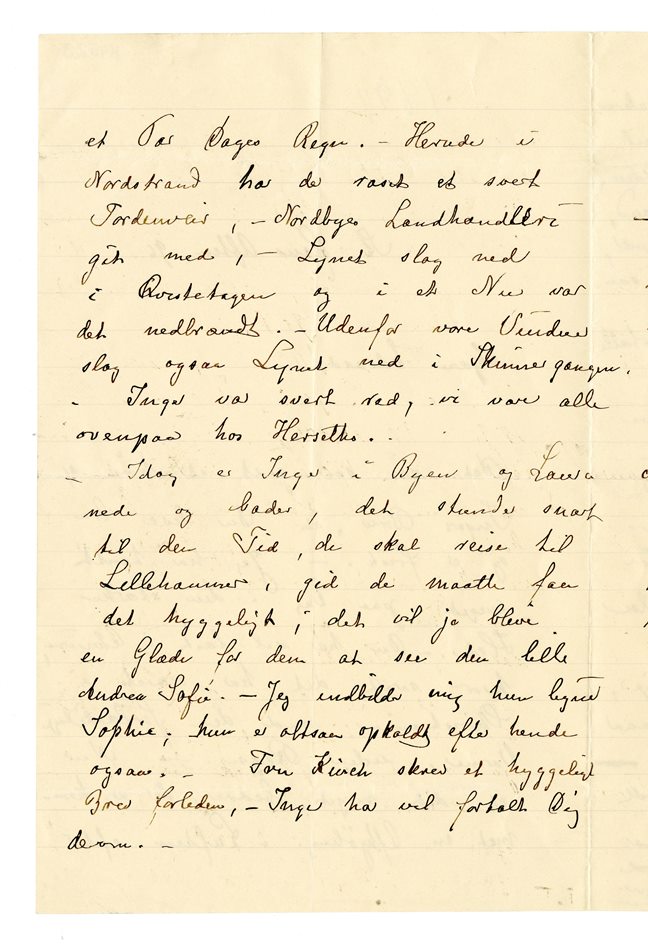 et Par Dages Regn. - Herude i
Nordstrand ha de raset et svert
Tordenveir, - Nordbyes Landhandleri
gik med, - Lynet slog ned
i Qvistetagen og i et Nu var
det nedbrændt. - Udenfor vore Vinduer
slog ogsaa Lynet ned i Skinnegangen.
- Inga va svert ræd, vi vare alle
ovenpaa hos Herseths.
- Idag er Inga i Byen og Laura
nede og bader, det stunder snart
til den Tid, de skal reise til
Lillehammer, gid de maatte faa
det hyggeligt; det vil jo blive
en Glæde for dem at see den lille
Andrea Sofie. - Jeg indbilder mig hun ligner
Sophie; hun er altsaa opkaldt efter hende
ogsaa. - Fru Kinch skrev et hyggeligt
Brev forleden, - Inga ha vel fortalt Dig
derom. -